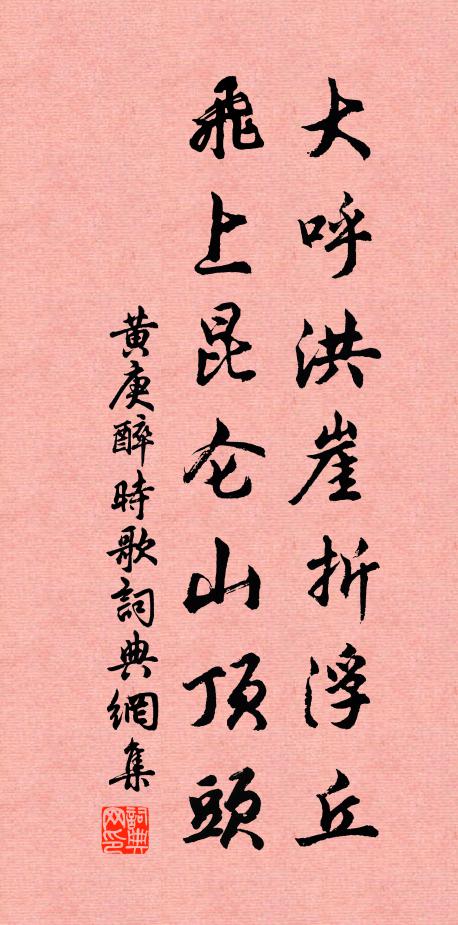 大呼洪崖折浮丘
飛上昆仑山顶頭
黄庚醉時歌詞典網集
詞典网印